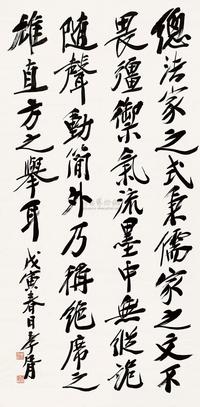 總法家之式秉儒家之文不
畏彊禦氣流墨中無縱詭
隨聲動簡外乃稱絕席之
雄直方之舉耳 戊寅春日 孝胥